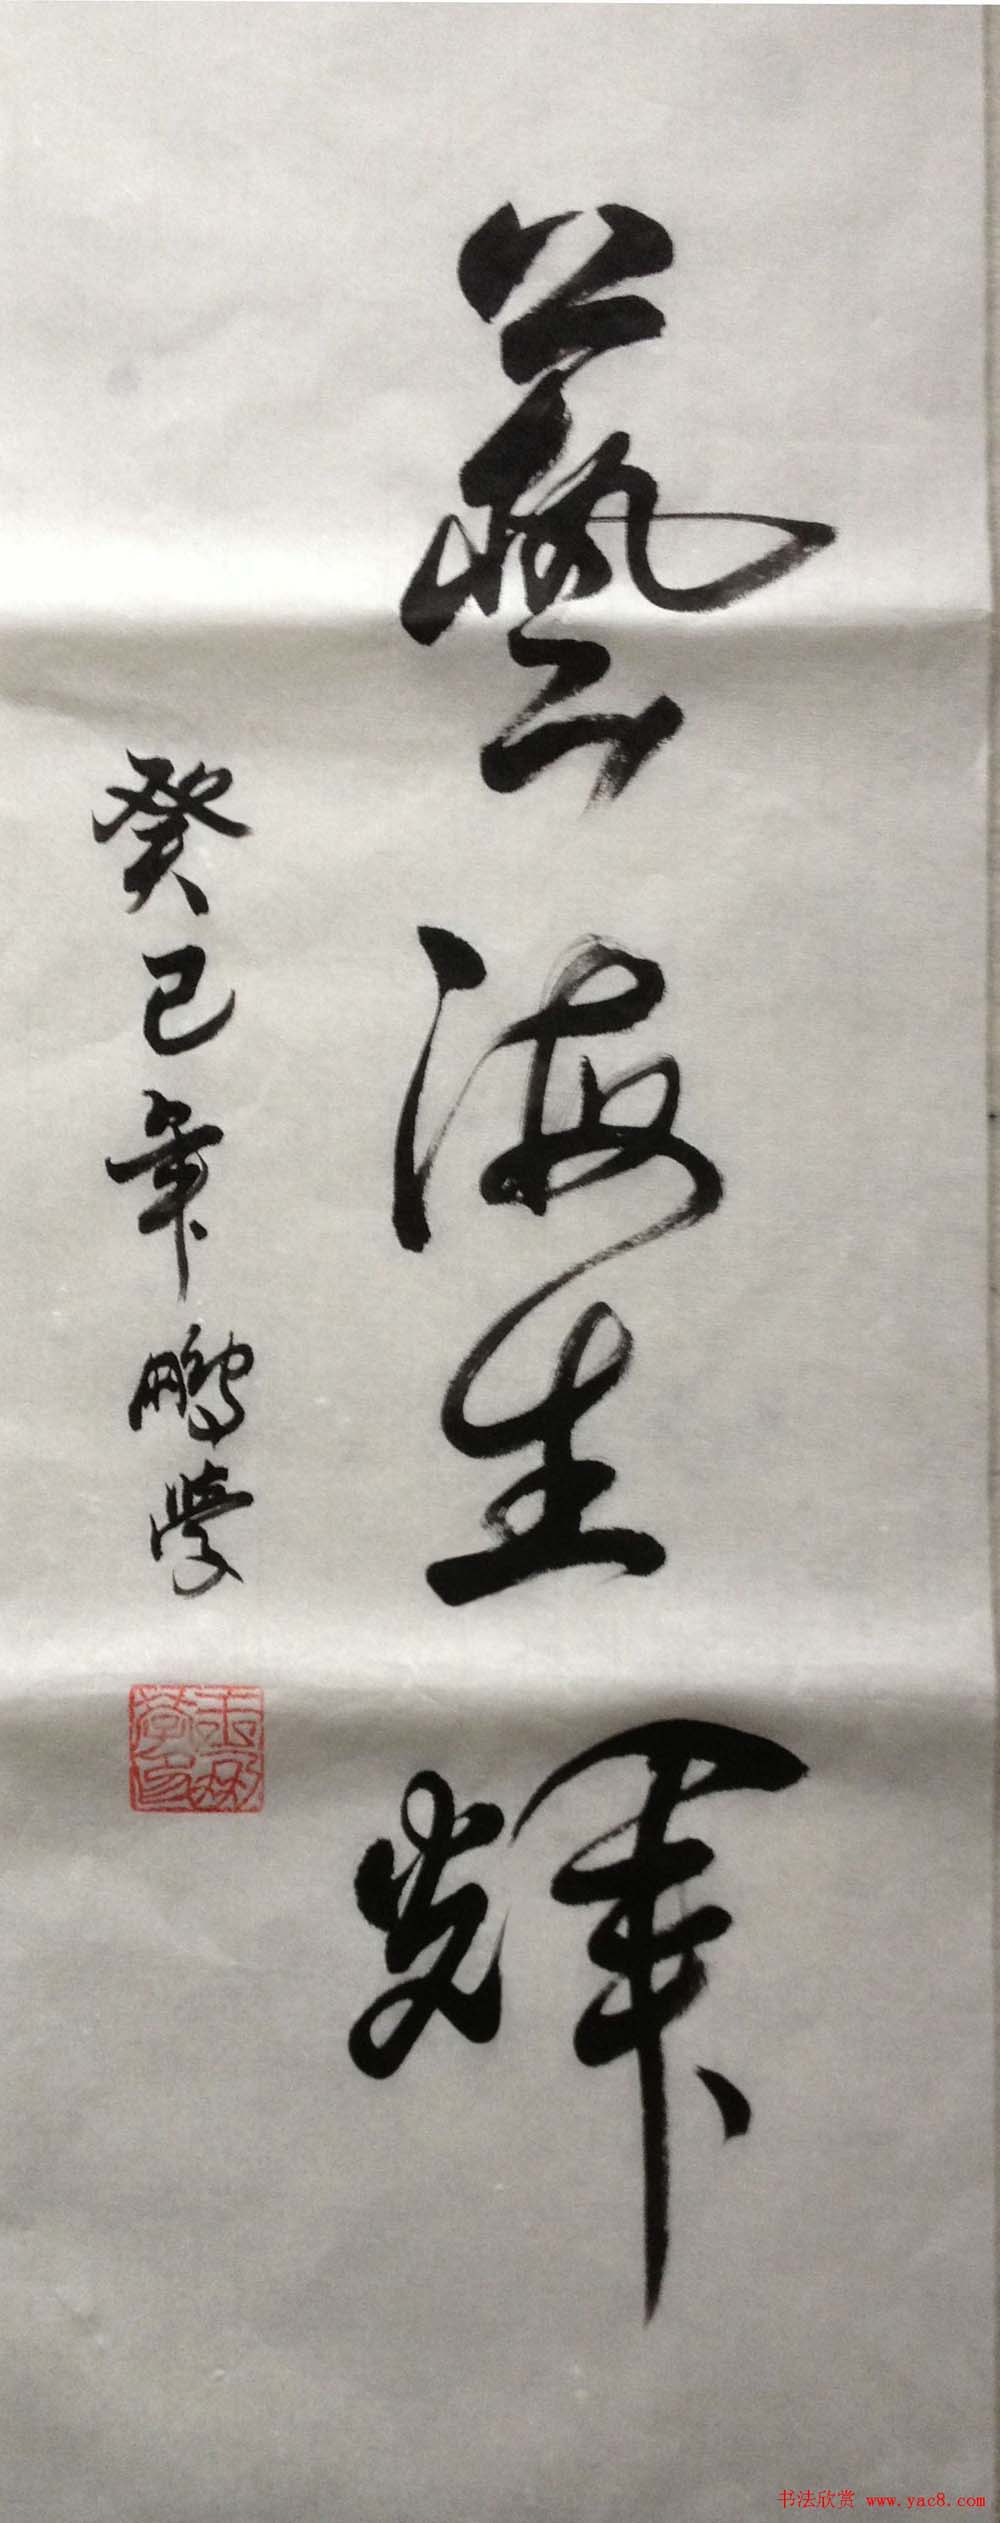 藝海生輝
癸巳年鵬學
书法欣赏 www.yac8.com